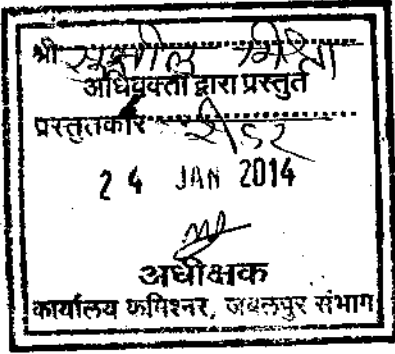 श्री सुशील मिश्रा
अधिवक्ता द्वारा प्रस्तुत
प्रस्तुतकार रीडर
24 JAN 2014
अधीक्षक
कार्यालय कमिश्नर, जबलपुर संभाग